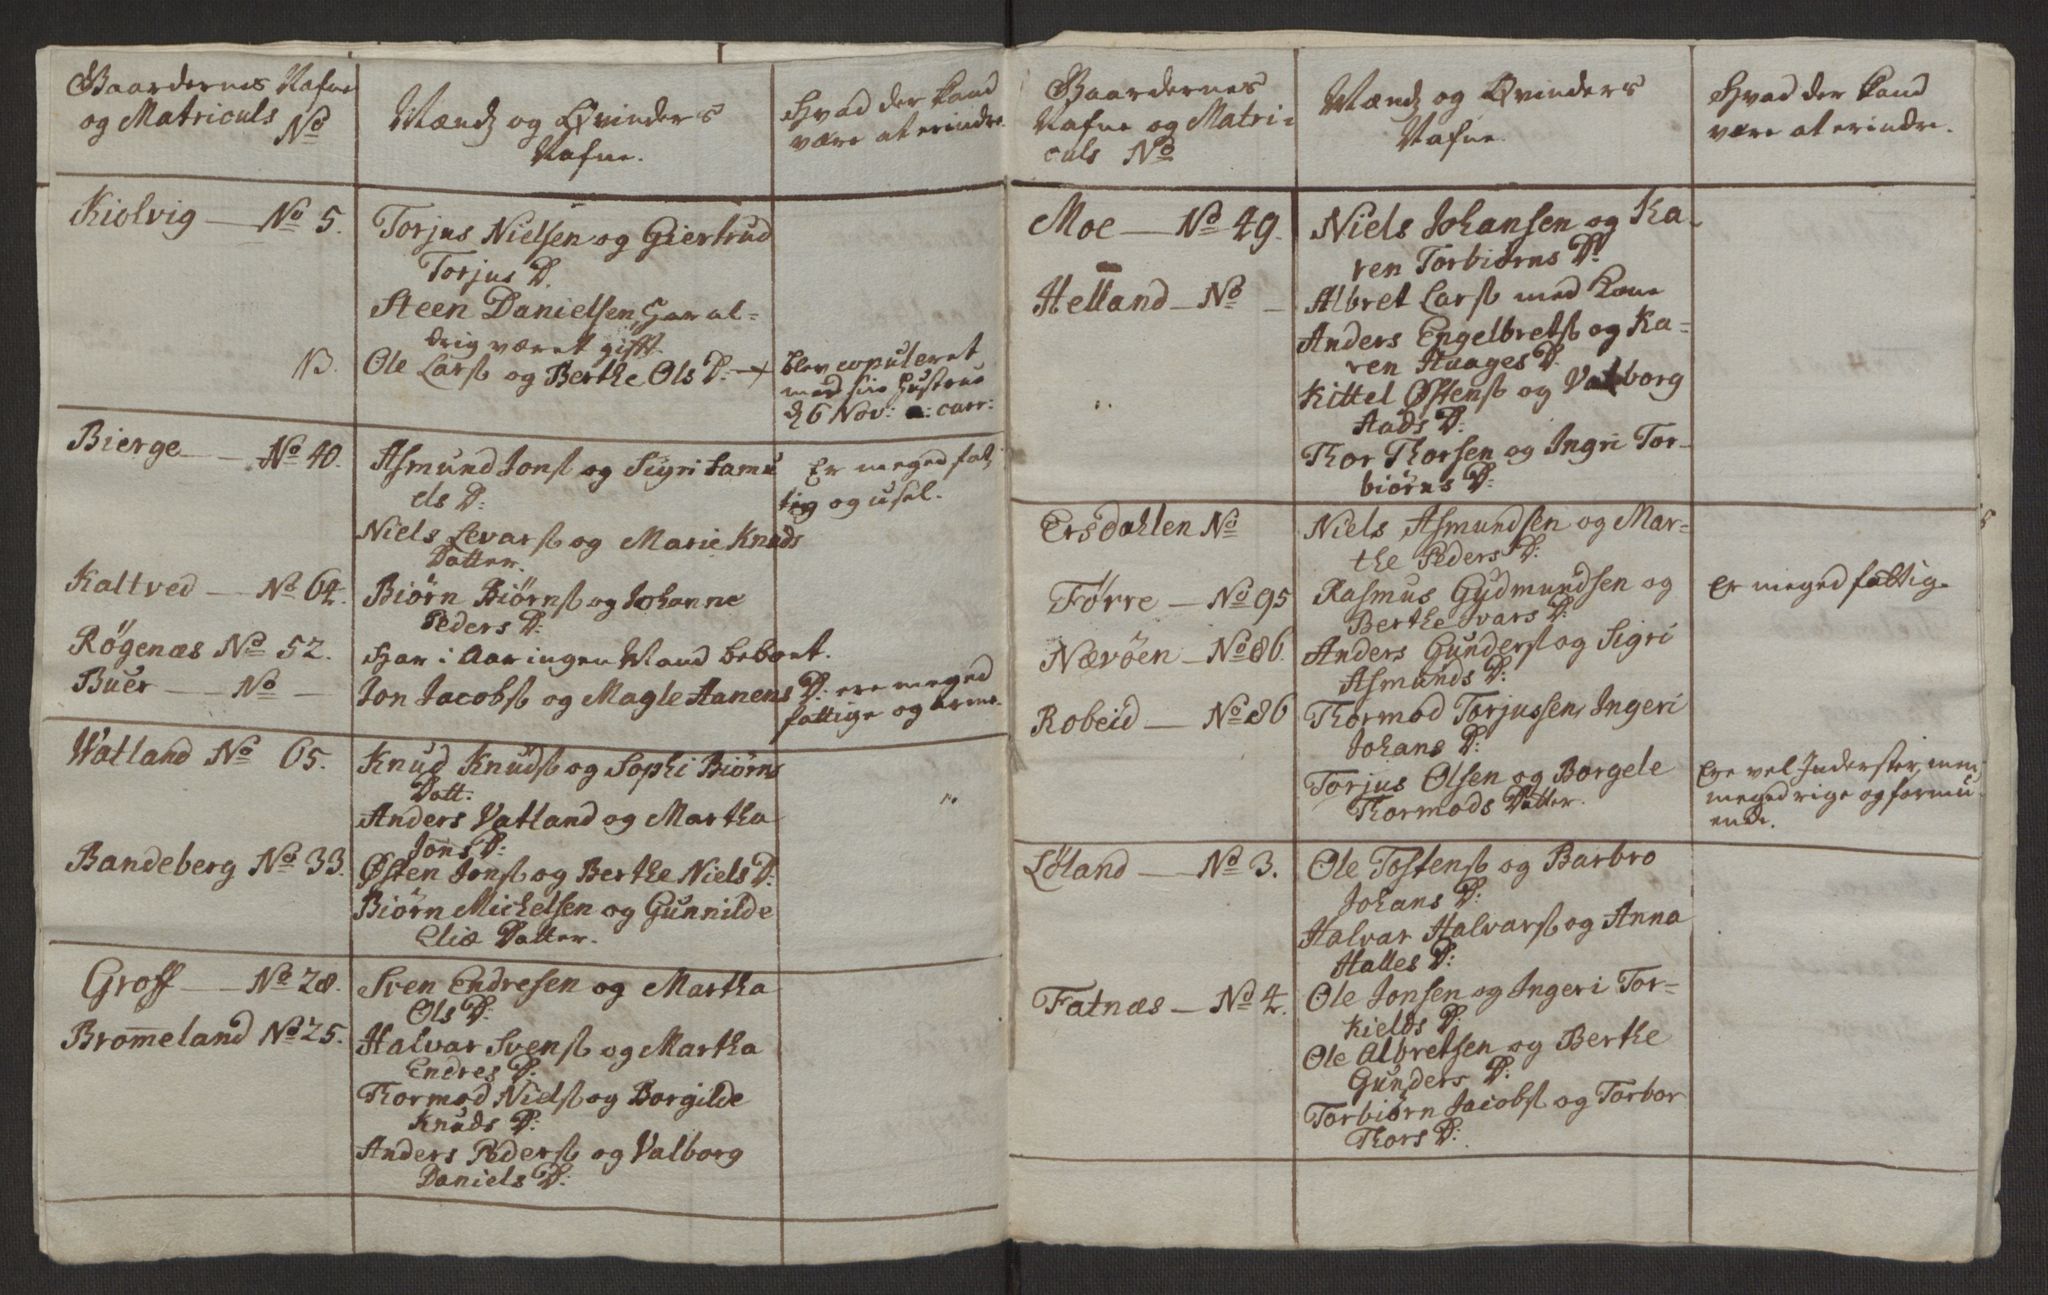 Gaardernes Nafne
og Matriculs
No
Mænds og Qvinders
Nafne.
Hvad der kand
være at erindre.
Kiolvig No 5.
Torjus Nielsen og Giertrud
Torjus D.
Steen Danielsen, Har al-
drig været gifft.
NB.
Ole Lars og Berthe Ols D:
blev copuleret
med sin Hustrue
d 6 Nov: a: curr:
Bierge No 40.
Asmund Jons og Sigri Samu
els D:
Er meged fat,
tig og usel.
Niels Levars og Marie Knuds
Datter.
Kaltved No 64.
Biørn Biørns og Johanne
Peders D:
Røgenæs No 52.
Har i Aar ingen Mand beboet.
Buer No
Jon Jacobs og Magle Aanens D: ere meged
fattige og arme.
Vatland No 65.
Knud Knuds og Sophi Biørns
Datt.
Anders Vatland og Martha
Jons D:
Bandeberg No 33.
Østen Jons og Berthe Niels D:
Biørn Michelsen og Gunnilde
Eliæ Datter.
Groff No 28.
Sven Endresen og Martha
Ols D:
Bromeland No 25.
Halvar Svens og Martha
Endres D:
Thormod Niels og Borgilde
Knuds D:
Anders Peders og Valborg
Daniels D:
Gaardernes
Nafne og Matri-
culs No
Mænds og Qvinders
Nafne
Hvad der kand
være at erindre.
Moe No 49.
Niels Johansen og Ka-
ren Torbiørns D:
Helland No
Albret Lars med Kone
Anders Engelbrets og Ka-
ren Aages D.
Kittel Østens og Valborg
Aads D:
Thor Thorsen og Ingri Tor-
biørns D:
Ersdahlen No
Niels Asmundsen og Mar-
the Peders D:
Førre No 95
Rasmus Gudmundsen og
Berthe Ivars D:
Er meged fattig.
Nævøen No 86.
Anders Gunders og Sigri
Asmunds D:
Robeid No 86
Thormod Torjussen, Ingeri
Johans D:
Torjus Olsen og Borgele
Thormods Datter.
Ere vel Inderster, men
meged rige og formu-
ende.
Løland No 3.
Ole Tostens og Barbro
Johans D:
Halvar Halvars og Anna
Halles D:
Fatnæs No 4.
Ole Jonsen og Ingeri Tor-
kields D:
Ole Albretsen og Berthe
Gunders D:
Torbiørn Jacobs og Torbor
Thors D: